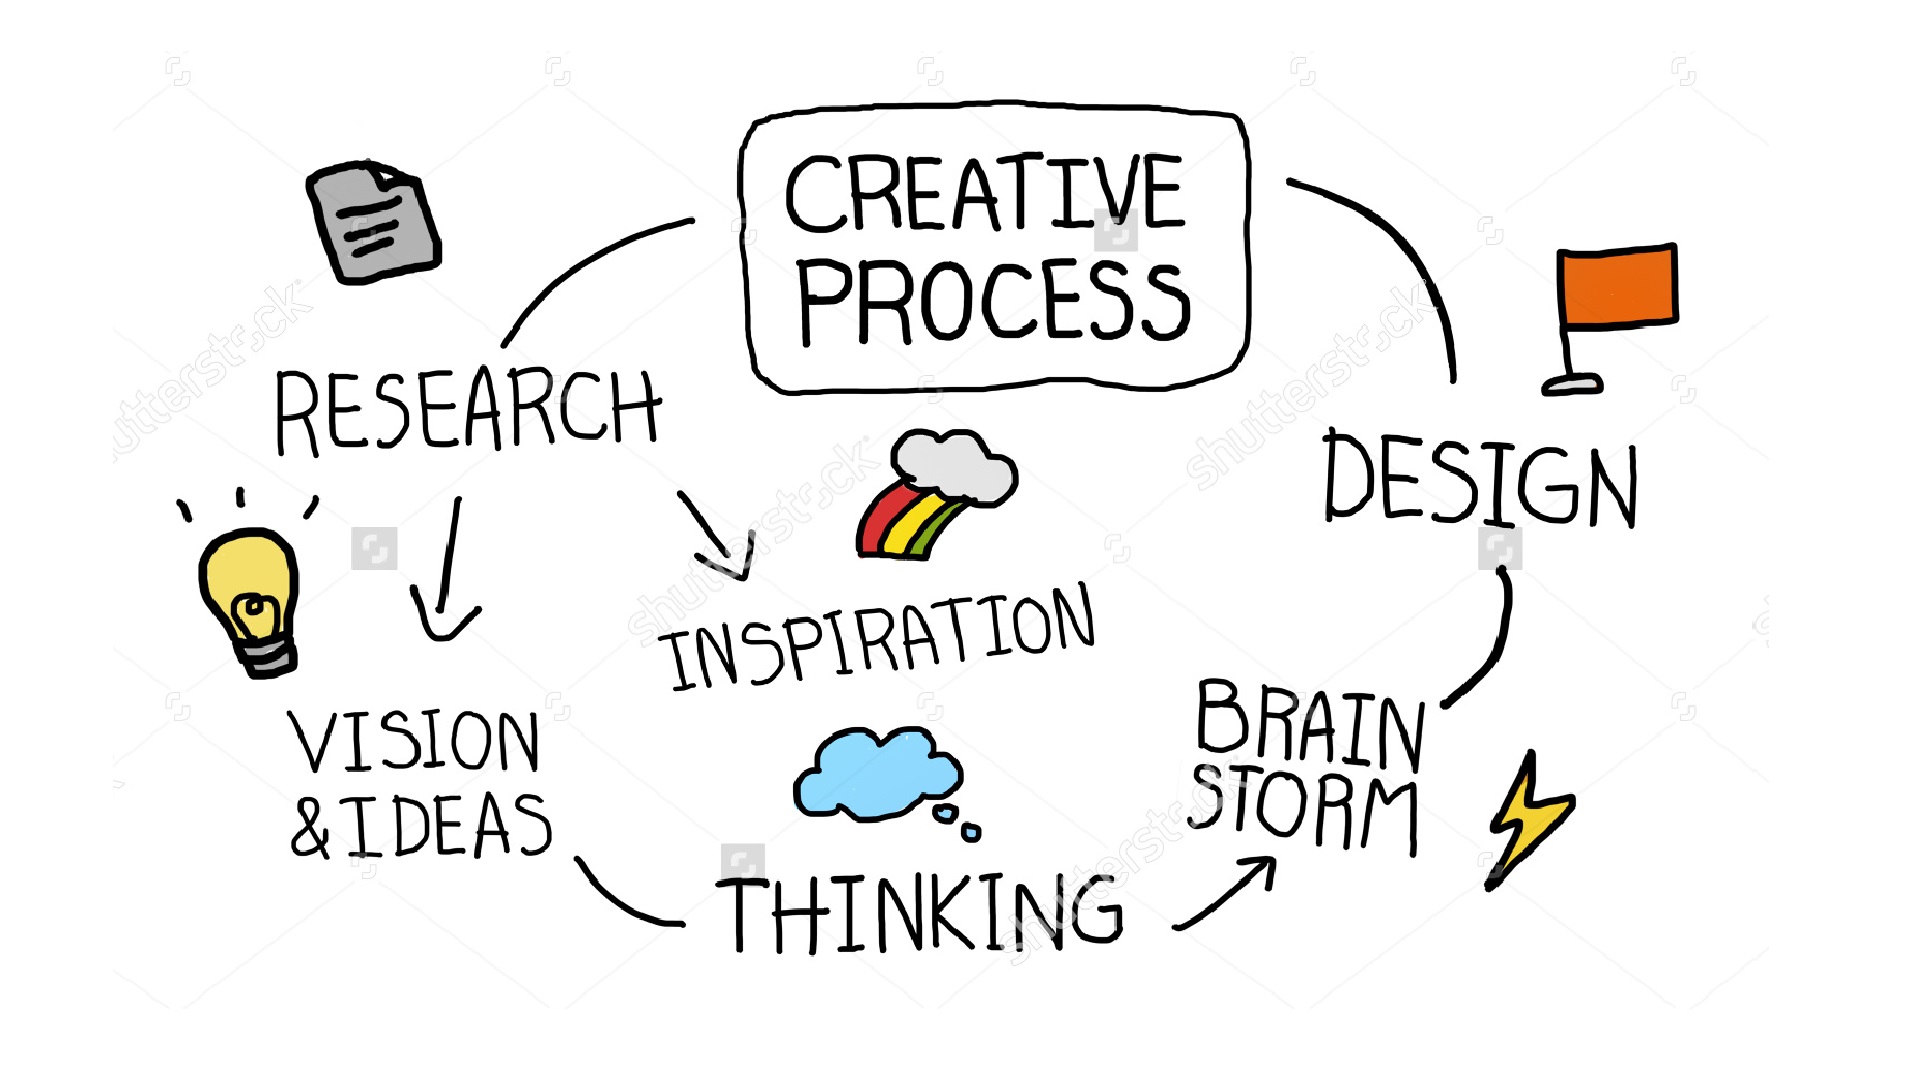 CREATIVE
PROCESS
RESEARCH
DESIGN
INSPIRATION
VISION
& IDEAS
BRAIN
STORM
THINKING
shutterstock
shutterstock
shutterstock
shutterstock